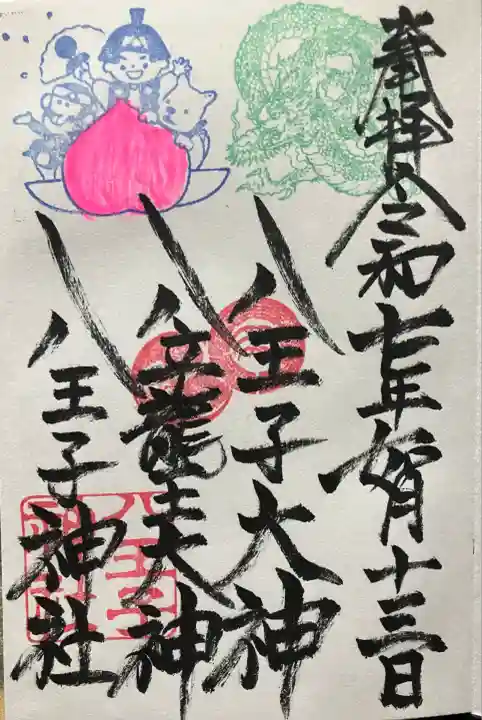 奉拝 令和七年 月十三日
八王子大神
八大龍王大神
八王子神社
八王子
神社